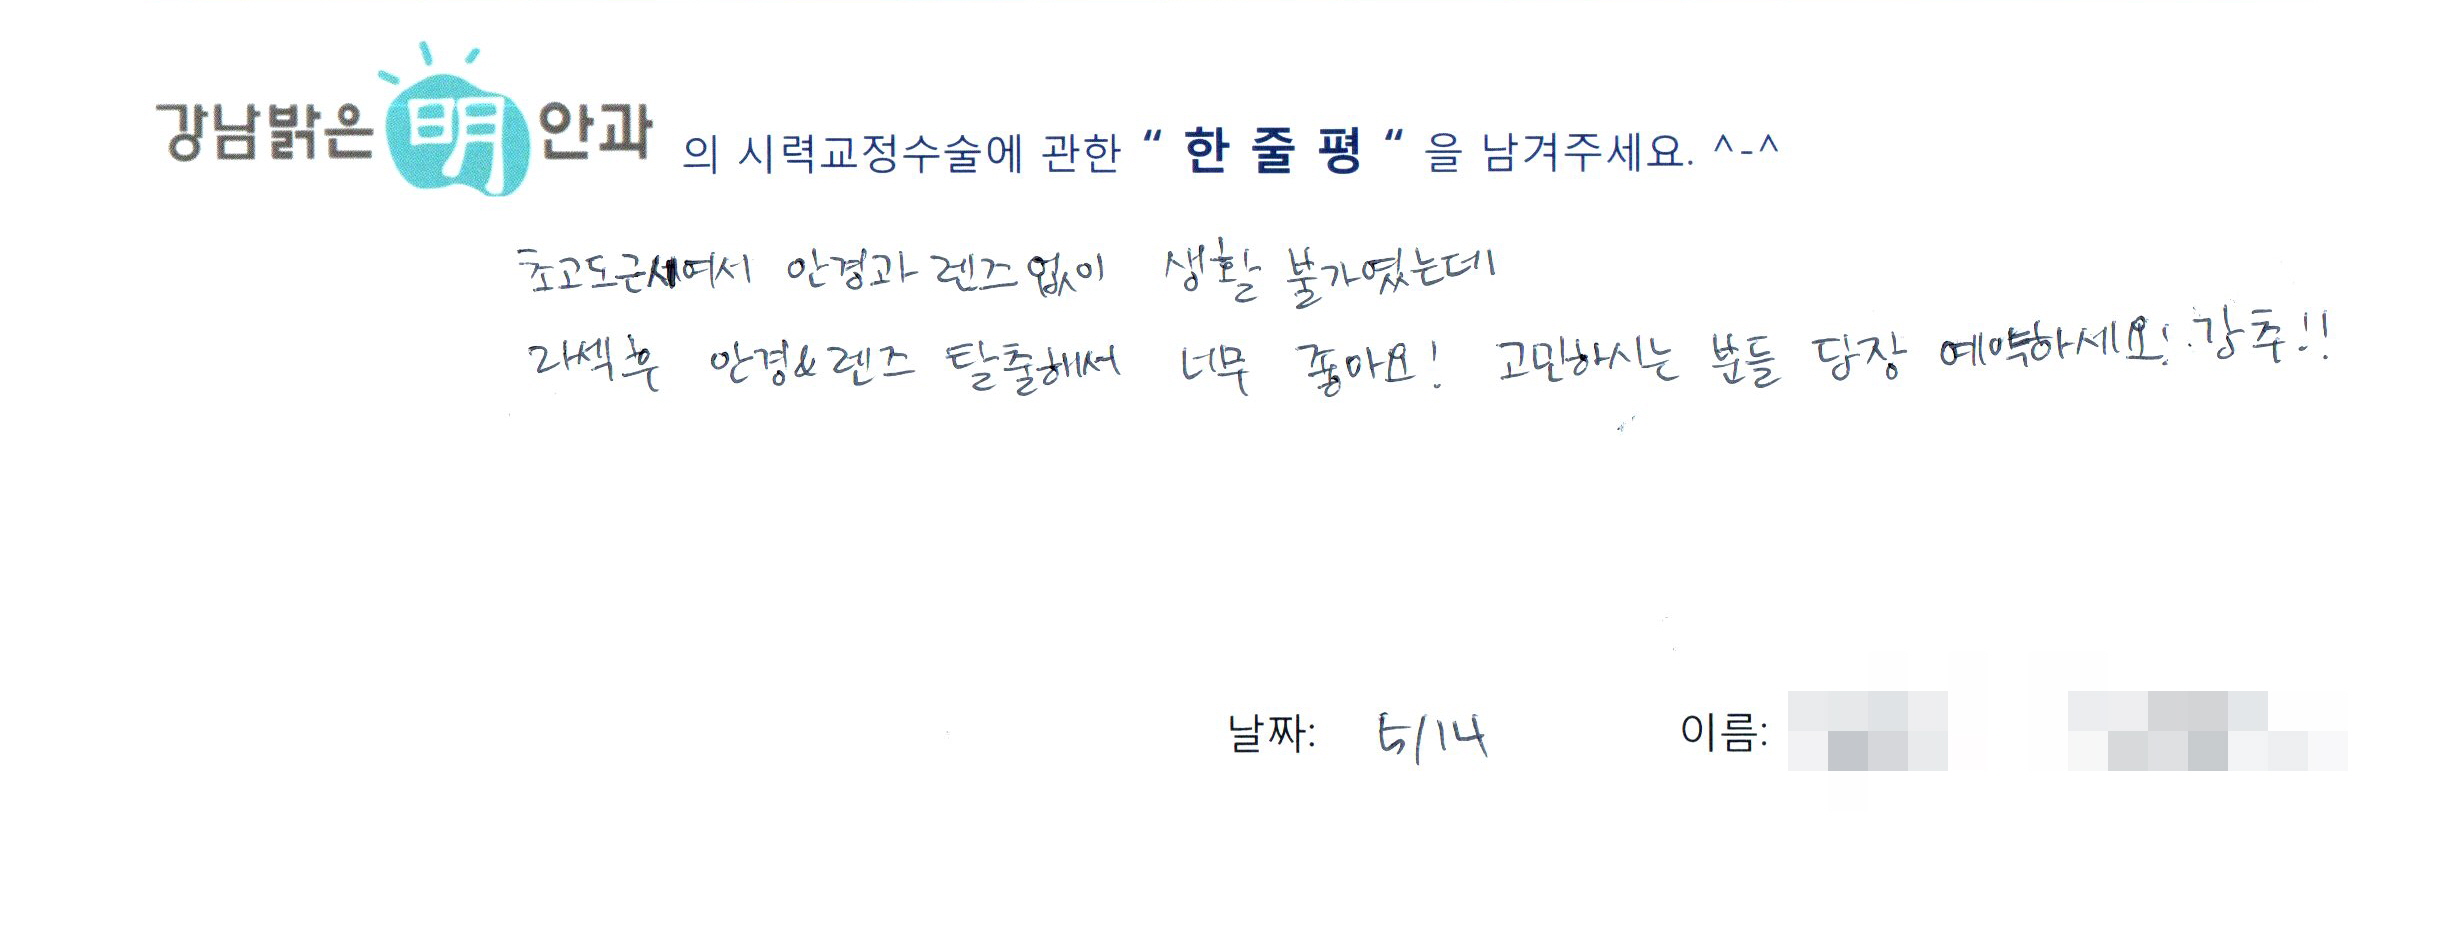 강남밝은明안과 의 시력교정수술에 관한 “ 한 줄 평 “ 을 남겨주세요. ^-^
초고도근시여서 안경과 렌즈 없이 생활 불가였는데
라섹후 안경&렌즈 탈출해서 너무 좋아요! 고민하시는 분들 당장 예약하세요! 강추!!
날짜: 5/14 이름: